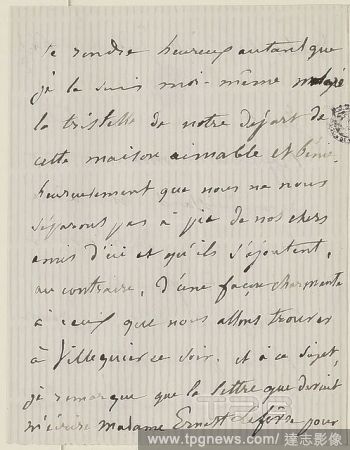 te rendre heureux autant que
je le suis moi-même malgré
la tristesse de notre départ de
cette maison aimable et bénie
heureusement que nous ne nous
séparons pas à pic de nos chers
amis d'ici et qu'ils s'ajoutent,
au contraire, d'une façon charmante
à ceux que nous allons trouver
à Villequier ce soir. et à ce sujet,
je remarque que la lettre que devait
m'écrire madame Ernest Lefèvre pour
www.tpgnews.com / 達志影像